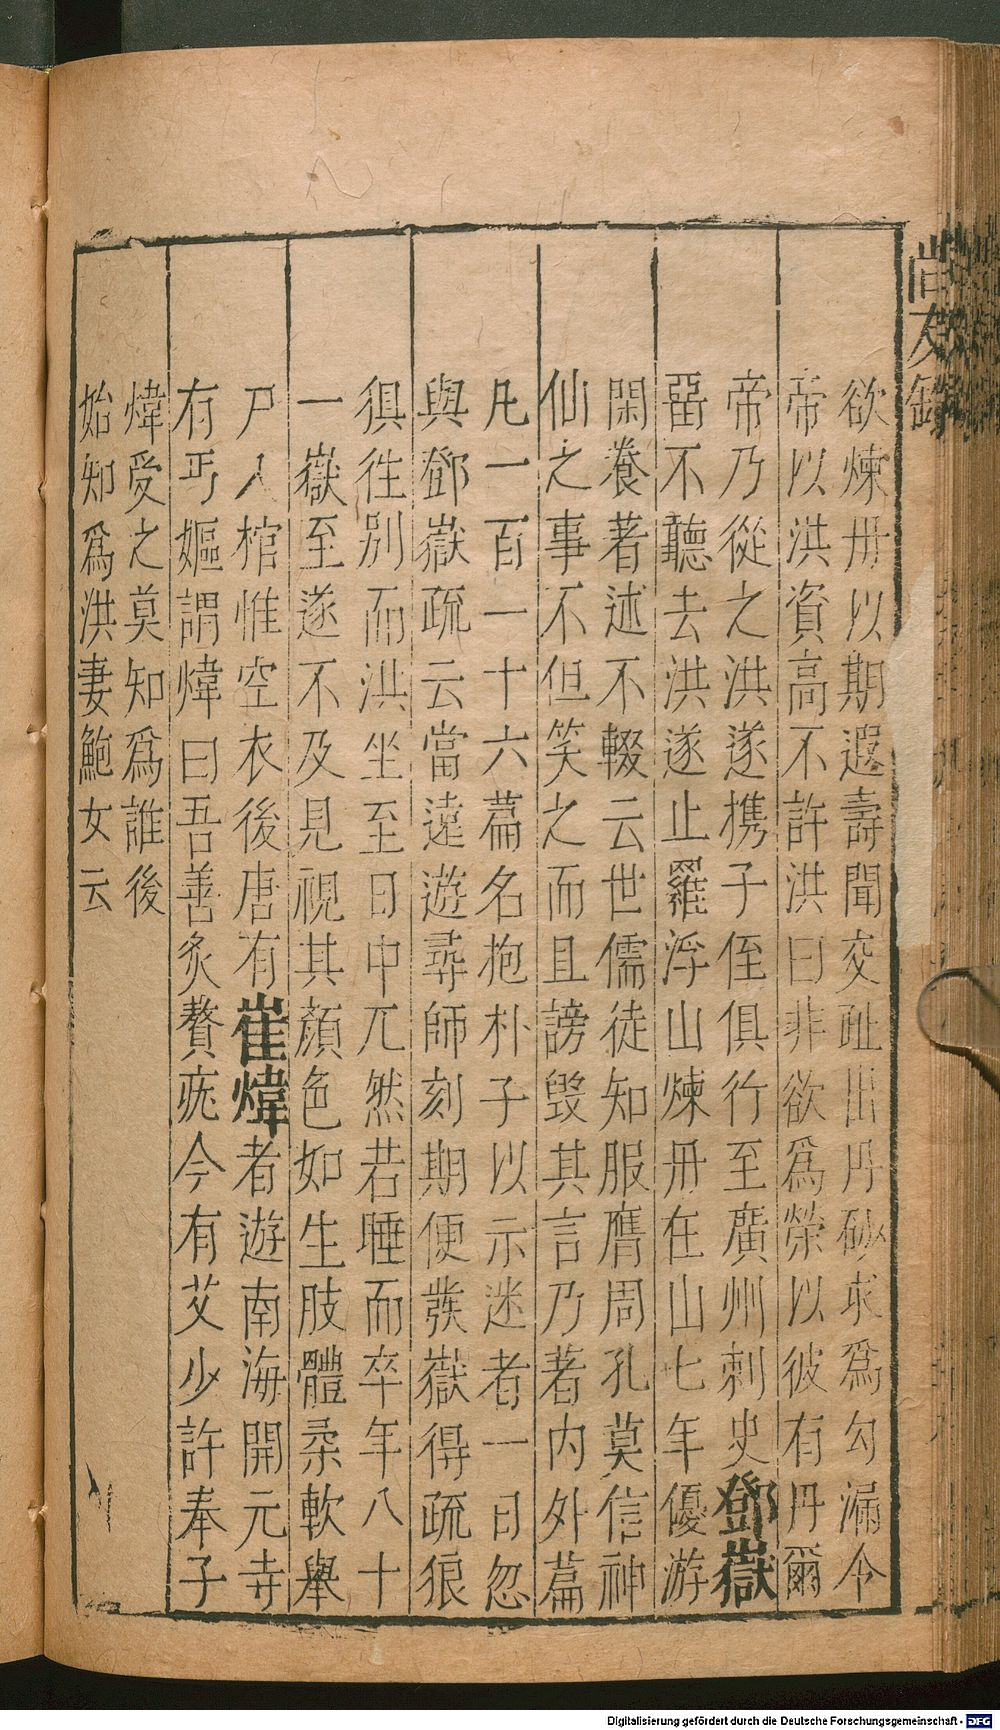 尚友錄
欲煉丹以期遐壽聞交趾出丹砂求爲勾漏令
帝以洪資高不許洪曰非欲爲榮以彼有丹爾
帝乃從之洪遂携子侄俱行至廣州刺史鄧嶽
畱不聽去洪遂止羅浮山煉丹在山七年優游
閑養著述不輟云世儒徒知服膺周孔莫信神
仙之事不但笑之而且謗毀其言乃著內外篇
凡一百一十六篇名抱朴子以示迷者一日忽
與鄧嶽疏云當遠遊尋師刻期便發嶽得疏狼
狽往別而洪坐至日中兀然若睡而卒年八十
一嶽至遂不及見視其顏色如生肢體柔軟舉
尸入棺惟空衣後唐有崔煒者遊南海開元寺
有丐嫗謂煒曰吾善炙贅疣今有艾少許奉子
煒受之莫知爲誰後
始知爲洪妻鮑女云
Digitalisierung gefördert durch die Deutsche Forschungsgemeinschaft - DFG